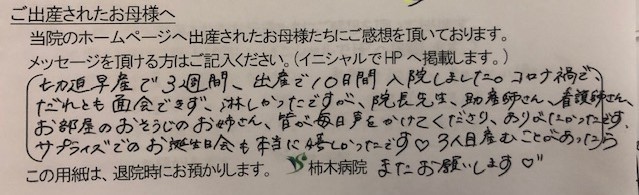 ご出産されたお母様へ
当院のホームページへ出産されたお母様たちにご感想を頂いております。
メッセージを頂ける方はご記入ください。(イニシャルでHPへ掲載します。)
切迫早産で3週間、出産で10日間入院しました。コロナ禍で、
だれとも面会できず、淋しかったですが、院長先生、助産師さん、看護師さん、
お部屋のおそうじのお姉さん、皆が毎日声をかけてくださり、ありがたかったです。
サプライズでのお誕生日会も本当に嬉しかったです♡ 3人目産むことがあったら
この用紙は、退院時にお預かりします。 柿木病院 またお願いします♡